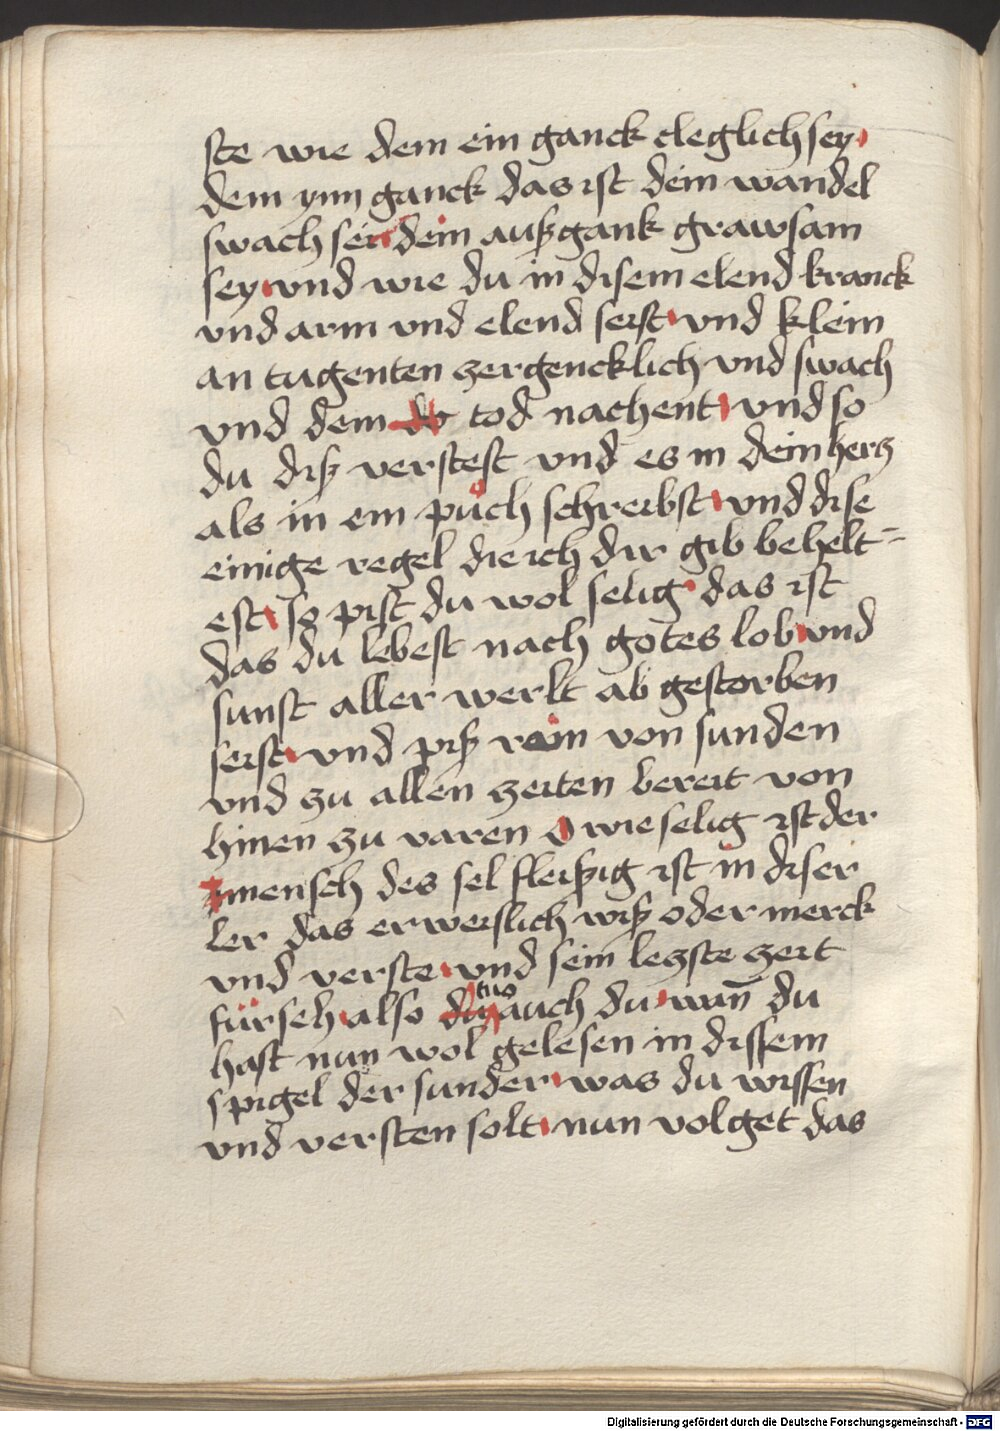 ste wie dem ein ganck cleglich sey
dem ynn ganck das ist dein wandel
swach sei dein außgank grawsam
sey vnd wie du in disem elend kranck
vnd arm vnd elend seist vnd klein
an tugenten zergencklich vnd swach
vnd dem tod nachent vnd so
du diß verstest vnd es in dein herz
als in ein puͦch schreibst vnd dise
einige regel die ich dir gib behelt=
est so pist du wol selig das ist
das du lebest nach gotes lob vnd
sunst aller werlt ab gestorben
seist vnd piß rein von sunden
vnd zu allen zeiten bereit von
hinen zu varen O wie selig ist der
mensch des sel fleißig ist in diser
ler das er weislich wiß oder merck
vnd verste vnd sein lezste zeit
fürseh also tuo auch du wan̄ du
hast nun wol gelesen in dissem
spigel der sunder was du wissen
vnd versten solt nun volget das
Digitalisierung gefördert durch die Deutsche Forschungsgemeinschaft - DFG